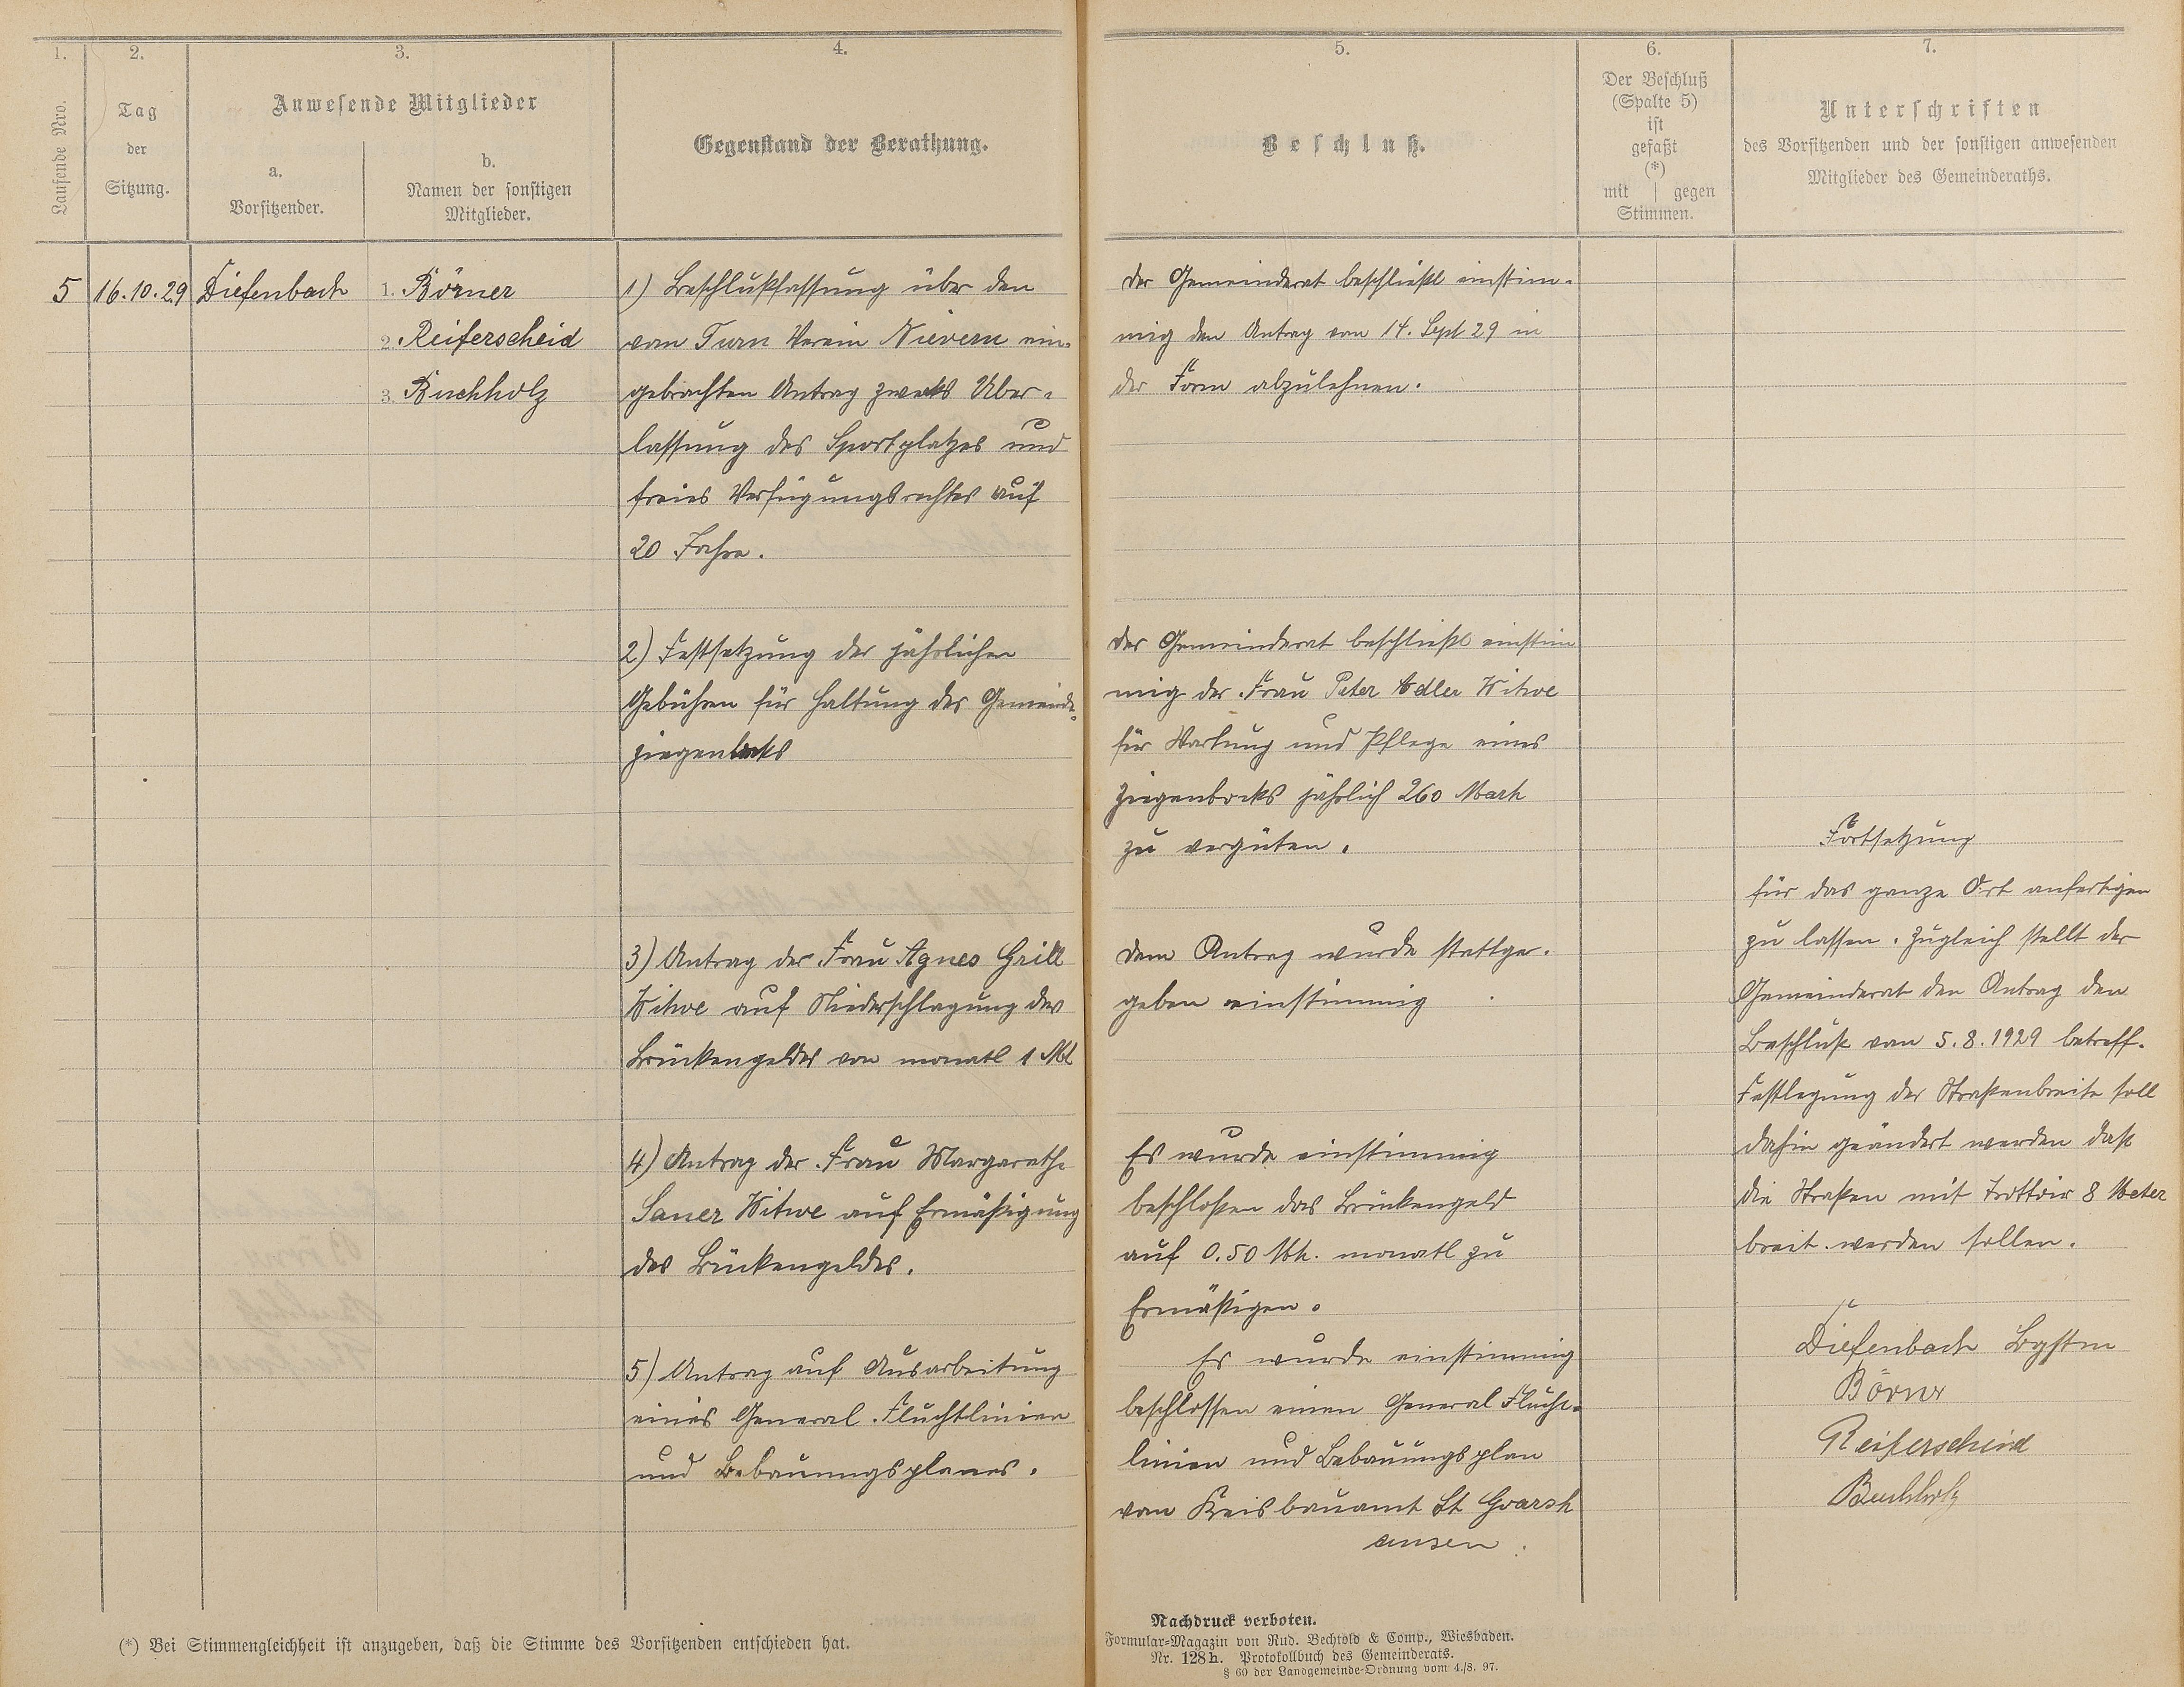 1.
2.
3.
4.
Laufende Nro.
Tag
der
Sitzung.
Anwesende Mitglieder
a.
Vorsitzender.
b.
Namen der sonstigen
Mitglieder.
Gegenstand der Berathung.
5
16.10.29
Diefenbach
1. Börner
2. Reiferscheid
3. Buchholz
1) Beschlußfassung über den
vom Turn Verein Nievern ein-
gebrachten Antrag zwecks Über-
lassung des Sportplatzes und
freies Verfügungsrechtes auf
20 Jahre.
2) Festsetzung der jährlichen
Gebühren für Haltung des Gemeinde-
ziegenbocks
3) Antrag der Frau Agnes Grill
Witwe auf Niederschlagung des
Brückengeldes von monatl 1 Mk
4) Antrag der Frau Margarethe
Saner Witwe auf Ermäßigung
des Brückengeldes.
5) Antrag auf Ausarbeitung
eines General Fluchtlinien
und Bebauungsplanes.
(*) Bei Stimmengleichheit ist anzugeben, daß die Stimme des Vorsitzenden entschieden hat.
5.
6.
7.
Beschluß.
Der Beschluß
(Spalte 5)
ist
gefaßt
(*)
mit | gegen
Stimmen.
Unterschriften
des Vorsitzenden und der sonstigen anwesenden
Mitglieder des Gemeinderaths.
Der Gemeinderat beschließt einstim-
mig den Antrag vom 14. Sept 29 in
der Form abzulehnen.
Der Gemeinderat beschließt einstim
mig der Frau Peter Adler Witwe
für Wartung und Pflege eines
Ziegenbocks jährlich 260 Mark
zu vergüten.
Dem Antrag wurde stattge-
geben einstimmig
Es wurde einstimmig
beschloßen das Brückengeld
auf 0.50 Mk. monatl zu
Ermäßigen.
Es wurde einstimmig
beschlossen einen General Flucht-
linien und Bebauungsplan
vom Kreisbauamt St Goarsh
ausen.
Fortsetzung
für das ganze Ort anfertigen
zu lassen. Zugleich stellt der
Gemeinderat den Antrag den
Beschluß vom 5.8.1929 betreff.
Festlegung der Straßenbreite soll
dahin geändert werden daß
die Straßen mit Trottoir 8 Meter
breit werden sollen.
Diefenbach Bgstm
Börner
Reiferscheid
Buchholz
Nachdruck verboten.
Formular-Magazin von Rud. Bechtold & Comp., Wiesbaden.
Nr. 128h. Protokollbuch des Gemeinderats.
§ 60 der Landgemeinde-Ordnung vom 4./8. 97.